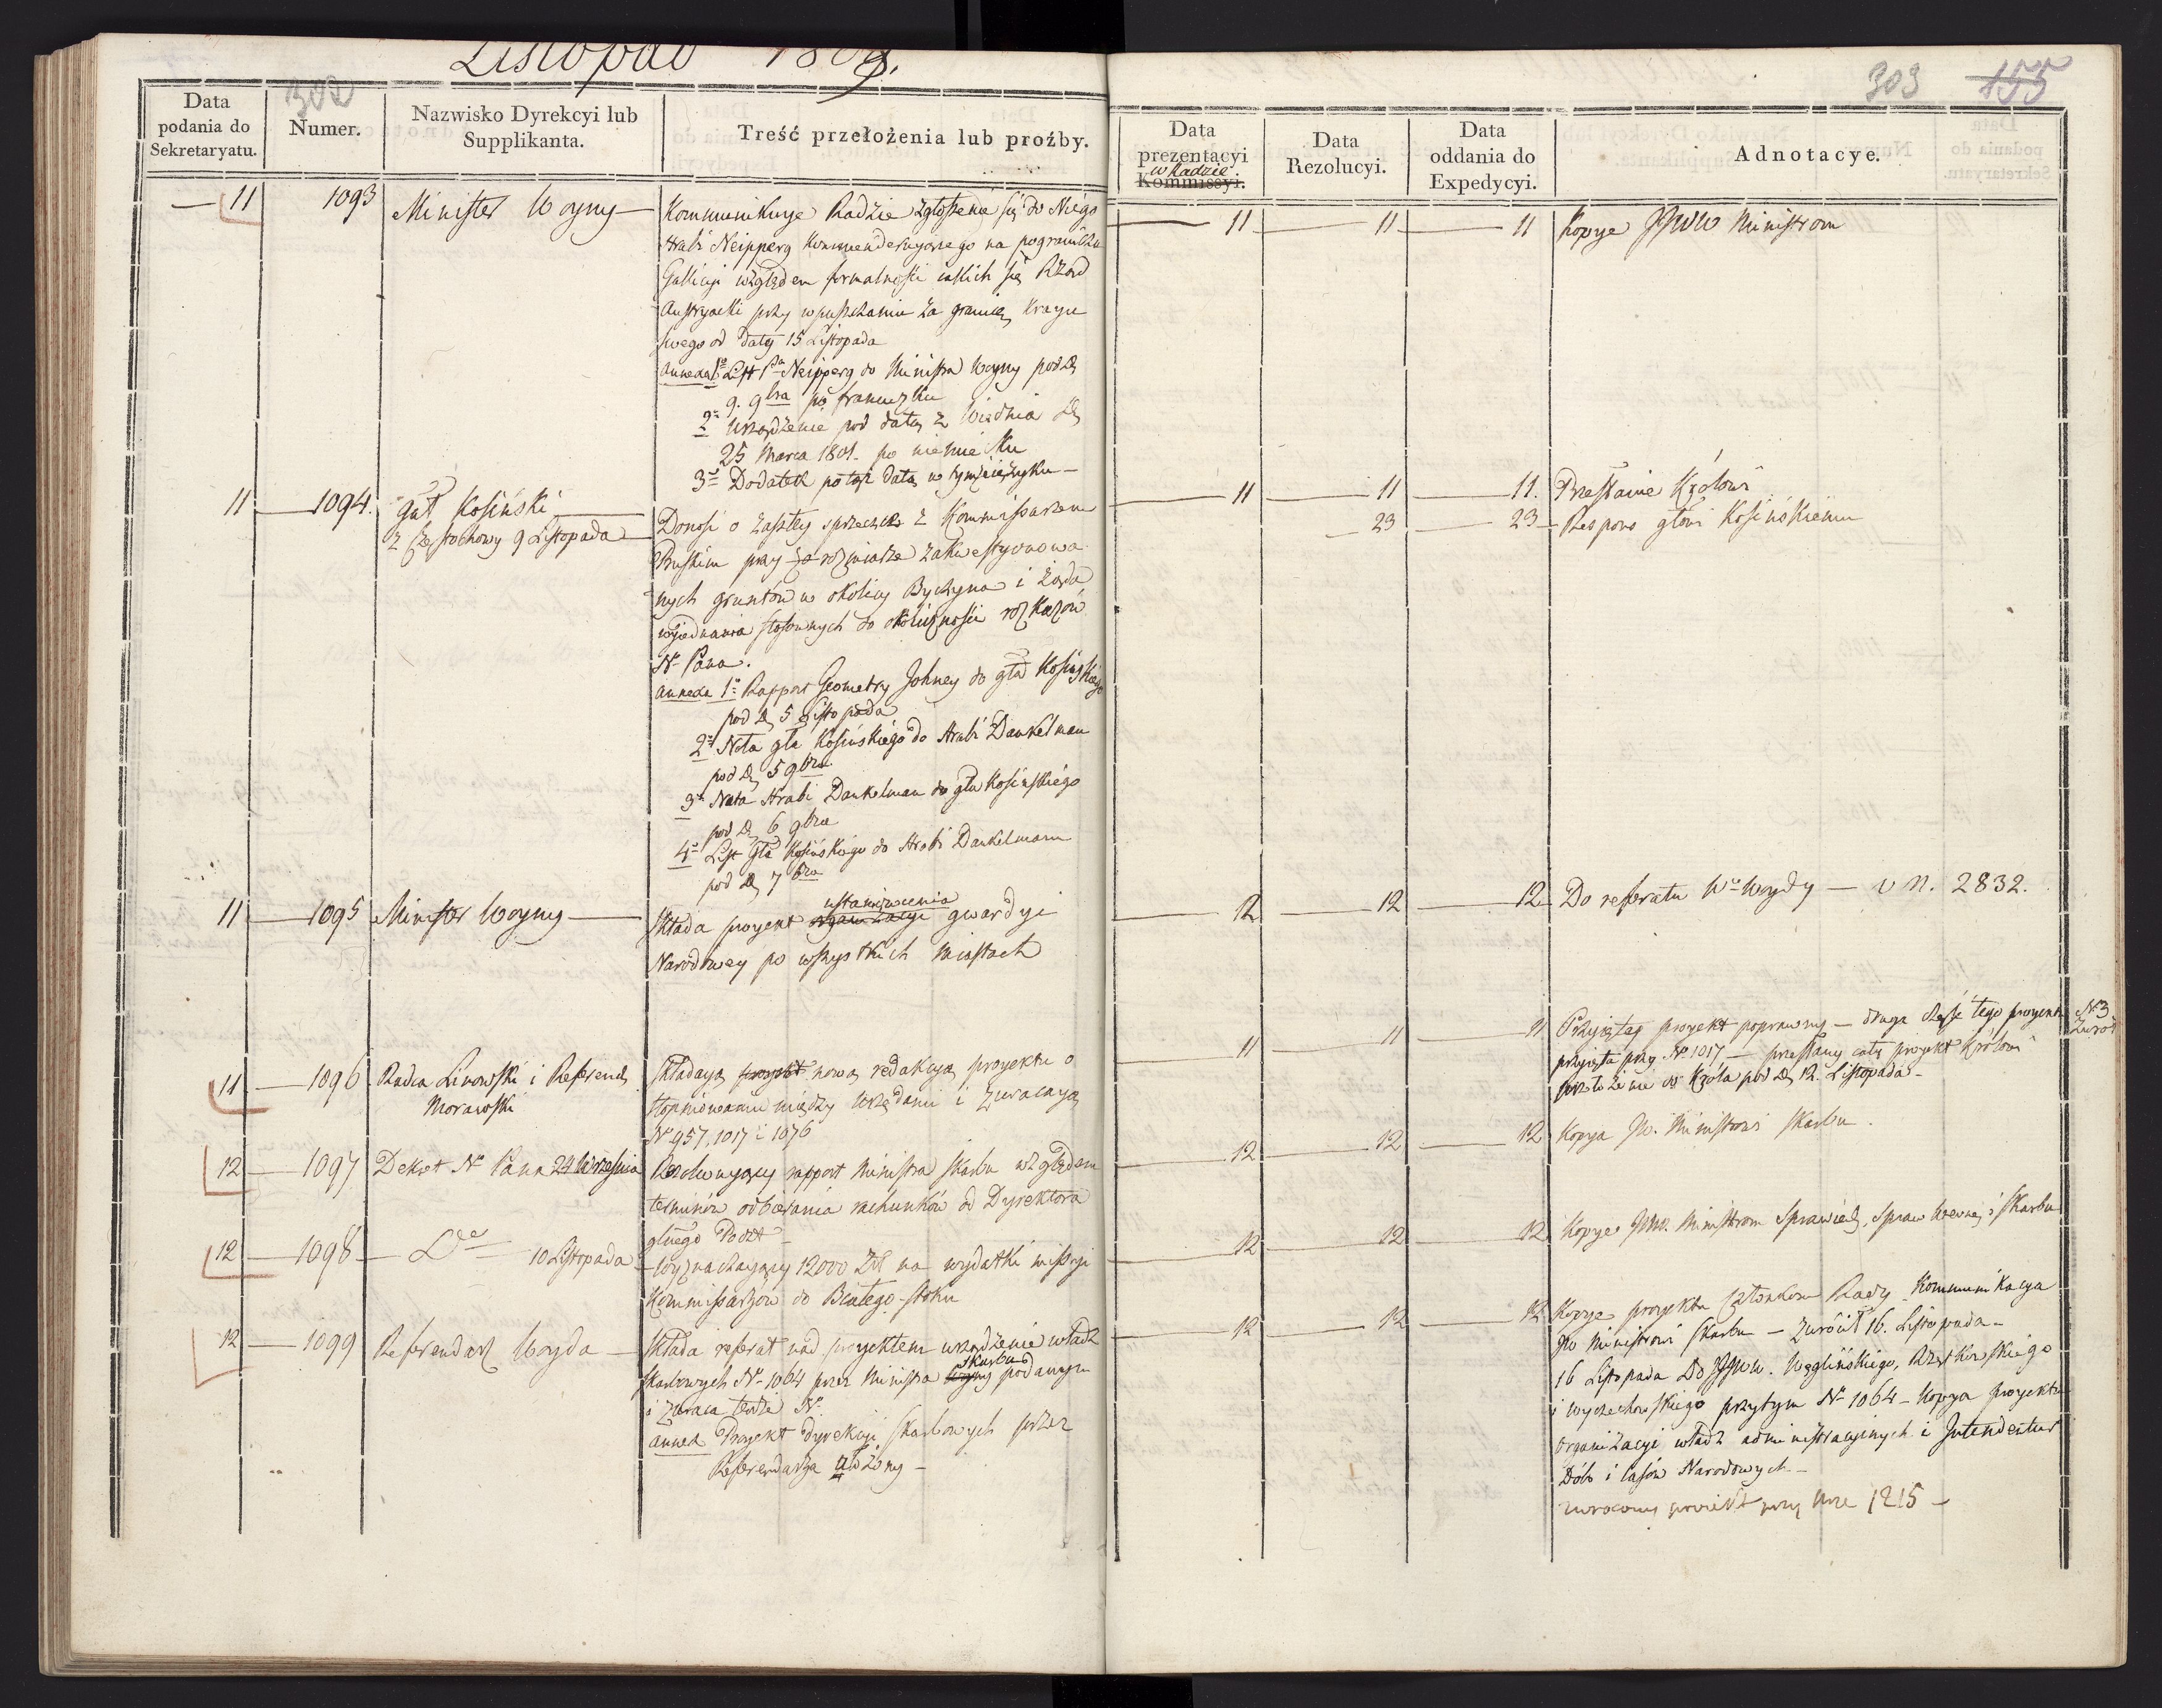 Listopad 1808.
302
Data podania do Sekretaryatu.
Numer.
Nazwisko Dyrekcyi lub Supplikanta.
Treść przełożenia lub proźby.
11 1093 Minister Woyny
Kommunikuye Radzie zgłoszenie się do Niego
Hrabi Neipperg kommenderuyącego na pograniczu
Gallicyi względem formalności iakich się Rząd
Austryacki przy wpuszczaniu za granicę Kraju
swego od daty 15 Listopada
annexa 1º List Neipperg do Ministra Woyny pod d.
9. 9bra po francuzku
2º Urządzenie pod datą z Wiednia d.
25 Marca 1801. po niemiecku
3º Dodatek pod tąż datą w tymże ięzyku
11 1094. Gnł Kosiński
z Częstochowy 9 Listopada
Donosi o zaszłey sprzeczce z Kommissarzem
Pruskim przy rozmiarze zakwestyonowa
nych gruntów w okolicy Byczyna i żąda
wyiednania stosownych do okoliczności rozkazów
Nº Pana.
annexa 1º Rapport Geometry Johney do gła Kosińskiego
pod d. 5 Listopada
2º Nota gła Kosińskiego do Hrabi Dankelman
pod d. 5 9bra
3º Nota Hrabi Dankelman do gła Kosińskiego
pod d. 6 9bra
4º List Gła Kosińskiego do Hrabi Dankelmann
pod d. 7 bra
11 1095 Minister Woyny
ustanowienia
Składa proyekt organizacyi gwardyi
Narodowey po wszystkich miastach
11 1096 Radca Linowski i Referend.
Morawski
Składaią proyekt nową redakcyą proyektu o
stopniowaniu między Urzędami i zwracaią
Nº 957, 1017 i 1076
12 1097 Dekret Nº Pana 24 Września
Rezolwuiący rapport Ministra Skarbu względem
terminów odbierania rachunków od Dyrektora
głnego Poczt
12 1098 Dº 10 Listopada
Wyznaczaiący 12000 Zł na wydatki missyi
Kommissarzów do Białego-stoku
12 1099 Referendarz Woyda
Składa referat nad proyektem urządzenia władz
Skarbu
skarbowych Nº 1064 przez Ministra Woyny podanym
i zwraca tenże Nº
annex. Proyekt Dyrekcyi skarbowych przez
Referendarza ułożony
303 155
Data prezentacyi w Radzie Kommissyi.
Data Rezolucyi.
Data oddania do Expedycyi.
Adnotacye.
11 11 11 Kopye JJWW Ministrom
11 11 11. Przesłanie Królowi
23 23 Respons głowi Kosińskiemu
12 12 12 Do referatu Wº Woydy — v N. 2832.
11 11 11 Przyięty proyekt poprawny — druga część tego proyektu
Nº 3
przyięta przy Nº 1017 — przesłany cały proyekt Królowi
przełożenie do Króla pod d. 12. Listopada
12 12 12 Kopya JW. Ministrowi Skarbu.
12 12 12 Kopye JWW. Ministrom Sprawied., Spraw Wewnę. i Skarbu
12 12 12 Kopye proyektu Członkom Rady. Kommunikacya
JW Ministrowi Skarbu — zwrócił 16. Listopada
16 Listopada Do JJWW. Węglińskiego, Rzętkowskiego
i Wyczechowskiego przytym Nº 1064 — Kopya proyektu
organizacyi władz administracyinych i Intendentur
Dóbr i lasów Narodowych
zwrócony proiekt przy Nrze 1215